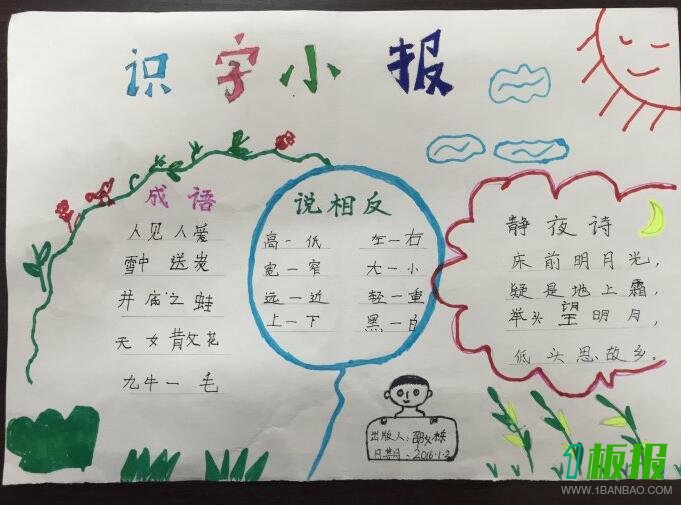 识字小报
成语
人见人爱
雪中送炭
井底之蛙
天女散花
九牛一毛
说相反
高—低 左—右
宽—窄 大—小
远—近 轻—重
上—下 黑—白
静夜诗
床前明月光，
疑是地上霜，
举头望明月，
低头思故乡。
出版人：
日期：2016.1.2
1板报
WWW.1BANBAO.COM